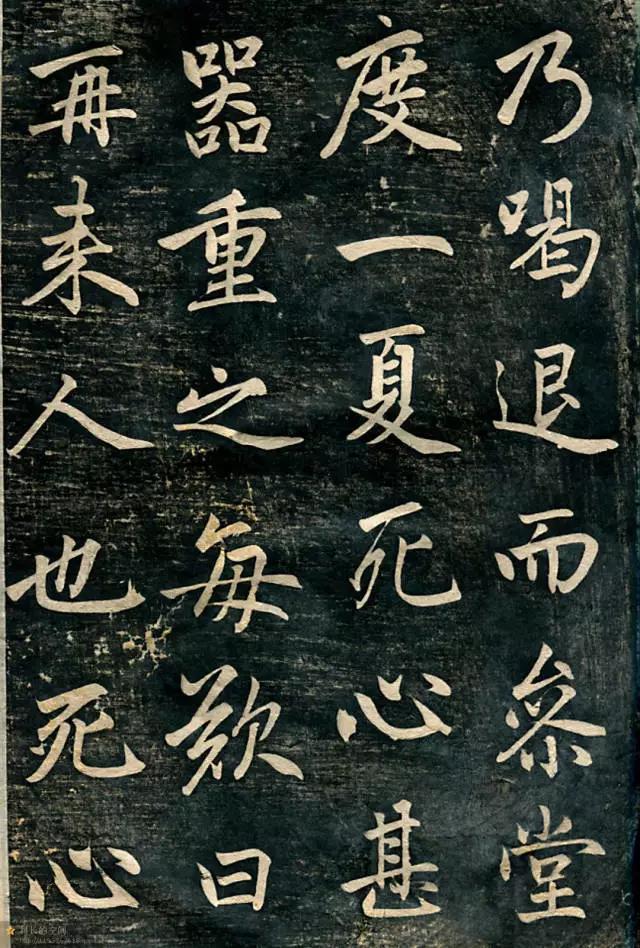 乃喝退而參堂
度一夏死心甚
器重之每歎曰
再来人也死心